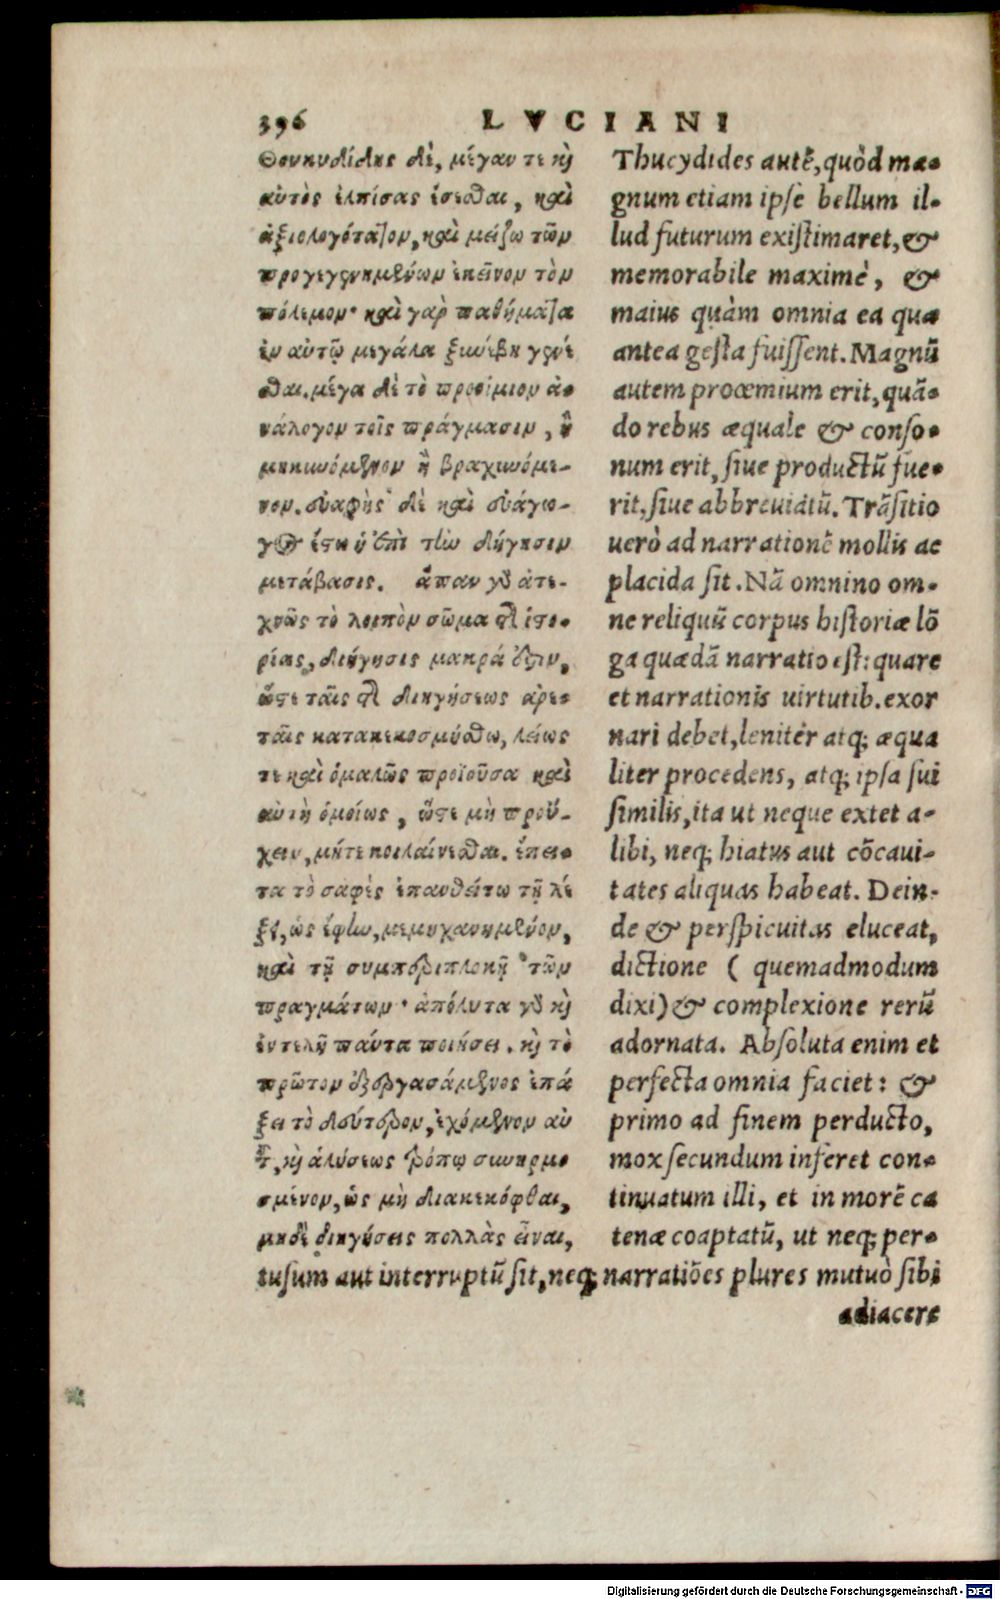 396 LVCIANI
Θουκυδίδης δὲ, μέγαν τε κỳ
αὐτὸς ἐλπίσας ἔσεσθαι, καὶ
ἀξιολογότατον, καὶ μείζω τῶν
προγεγενημένων ἐκεῖνον τὸν
πόλεμον· καὶ γὰρ παθήματα
ἐν αὐτῷ μεγάλα ξυνέβη γενέ
σθαι. μέγα δὲ τὸ προοίμιον ἀ-
νάλογον τοῖς πράγμασιν, ἢ
μηκυνόμενον ἢ βραχυνόμε-
νον. εὐαφὴς δὲ καὶ εὐάγω-
γος ἔστω ἡ ἐπὶ τὴν διήγησιν
μετάβασις. ἅπαν γὰρ ἀτε-
χνῶς τὸ λοιπὸν σῶμα τῆς ἱστο-
ρίας, διήγησις μακρά ἐστιν,
ὥστε ταῖς τῆς διηγήσεως ἀρε-
ταῖς κατακεκοσμήσθω, λείως
τε καὶ ὁμαλῶς προϊοῦσα καὶ
αὑτῇ ὁμοίως, ὥστε μὴ προὔ-
χειν, μήτε κοιλαίνεσθαι. ἔπει-
τα τὸ σαφὲς ἐπανθείτω τῇ λέ
ξει, ὡς ἔφην, μεμηχανημένον,
καὶ τῇ συμπεριπλοκῇ τῶν
πραγμάτων· ἀπόλυτα γὰρ κỳ
ἐντελῆ πάντα ποιήσει. κỳ τὸ
πρῶτον ἐξεργασάμενος ἐπά
ξει τὸ δεύτερον, ἐχόμενον αὐ
τοῦ, κỳ ἁλύσεως τρόπῳ συνηρμο
σμένον, ὡς μὴ διακεκόφθαι,
μηδὲ διηγήσεις πολλὰς εἶναι,
Thucydides autẽ, quòd ma-
gnum etiam ipse bellum il-
lud futurum existimaret, &
memorabile maximè, &
maius quàm omnia ea quæ
antea gesta fuissent. Magnũ
autem proœmium erit, quã-
do rebus æquale & conso-
num erit, siue productũ fue-
rit, siue abbreuiatũ. Trãsitio
uerò ad narrationẽ mollis ac
placida sit. Nã omnino om-
ne reliquũ corpus historiæ lõ
ga quædã narratio est: quare
et narrationis uirtutib. exor
nari debet, leniter atq; æqua
liter procedens, atq; ipsa sui
similis, ita ut neque extet a-
libi, neq; hiatus aut cõcaui-
tates aliquas habeat. Dein-
de & perspicuitas eluceat,
dictione ( quemadmodum
dixi) & complexione rerũ
adornata. Absoluta enim et
perfecta omnia faciet: &
primo ad finem perducto,
mox secundum inferet con-
tinuatum illi, et in morẽ ca
tenæ coaptatũ, ut neq; per-
tusum aut interruptũ sit, neq; narratiões plures mutuò sibi
adiacere
Digitalisierung gefördert durch die Deutsche Forschungsgemeinschaft - DFG